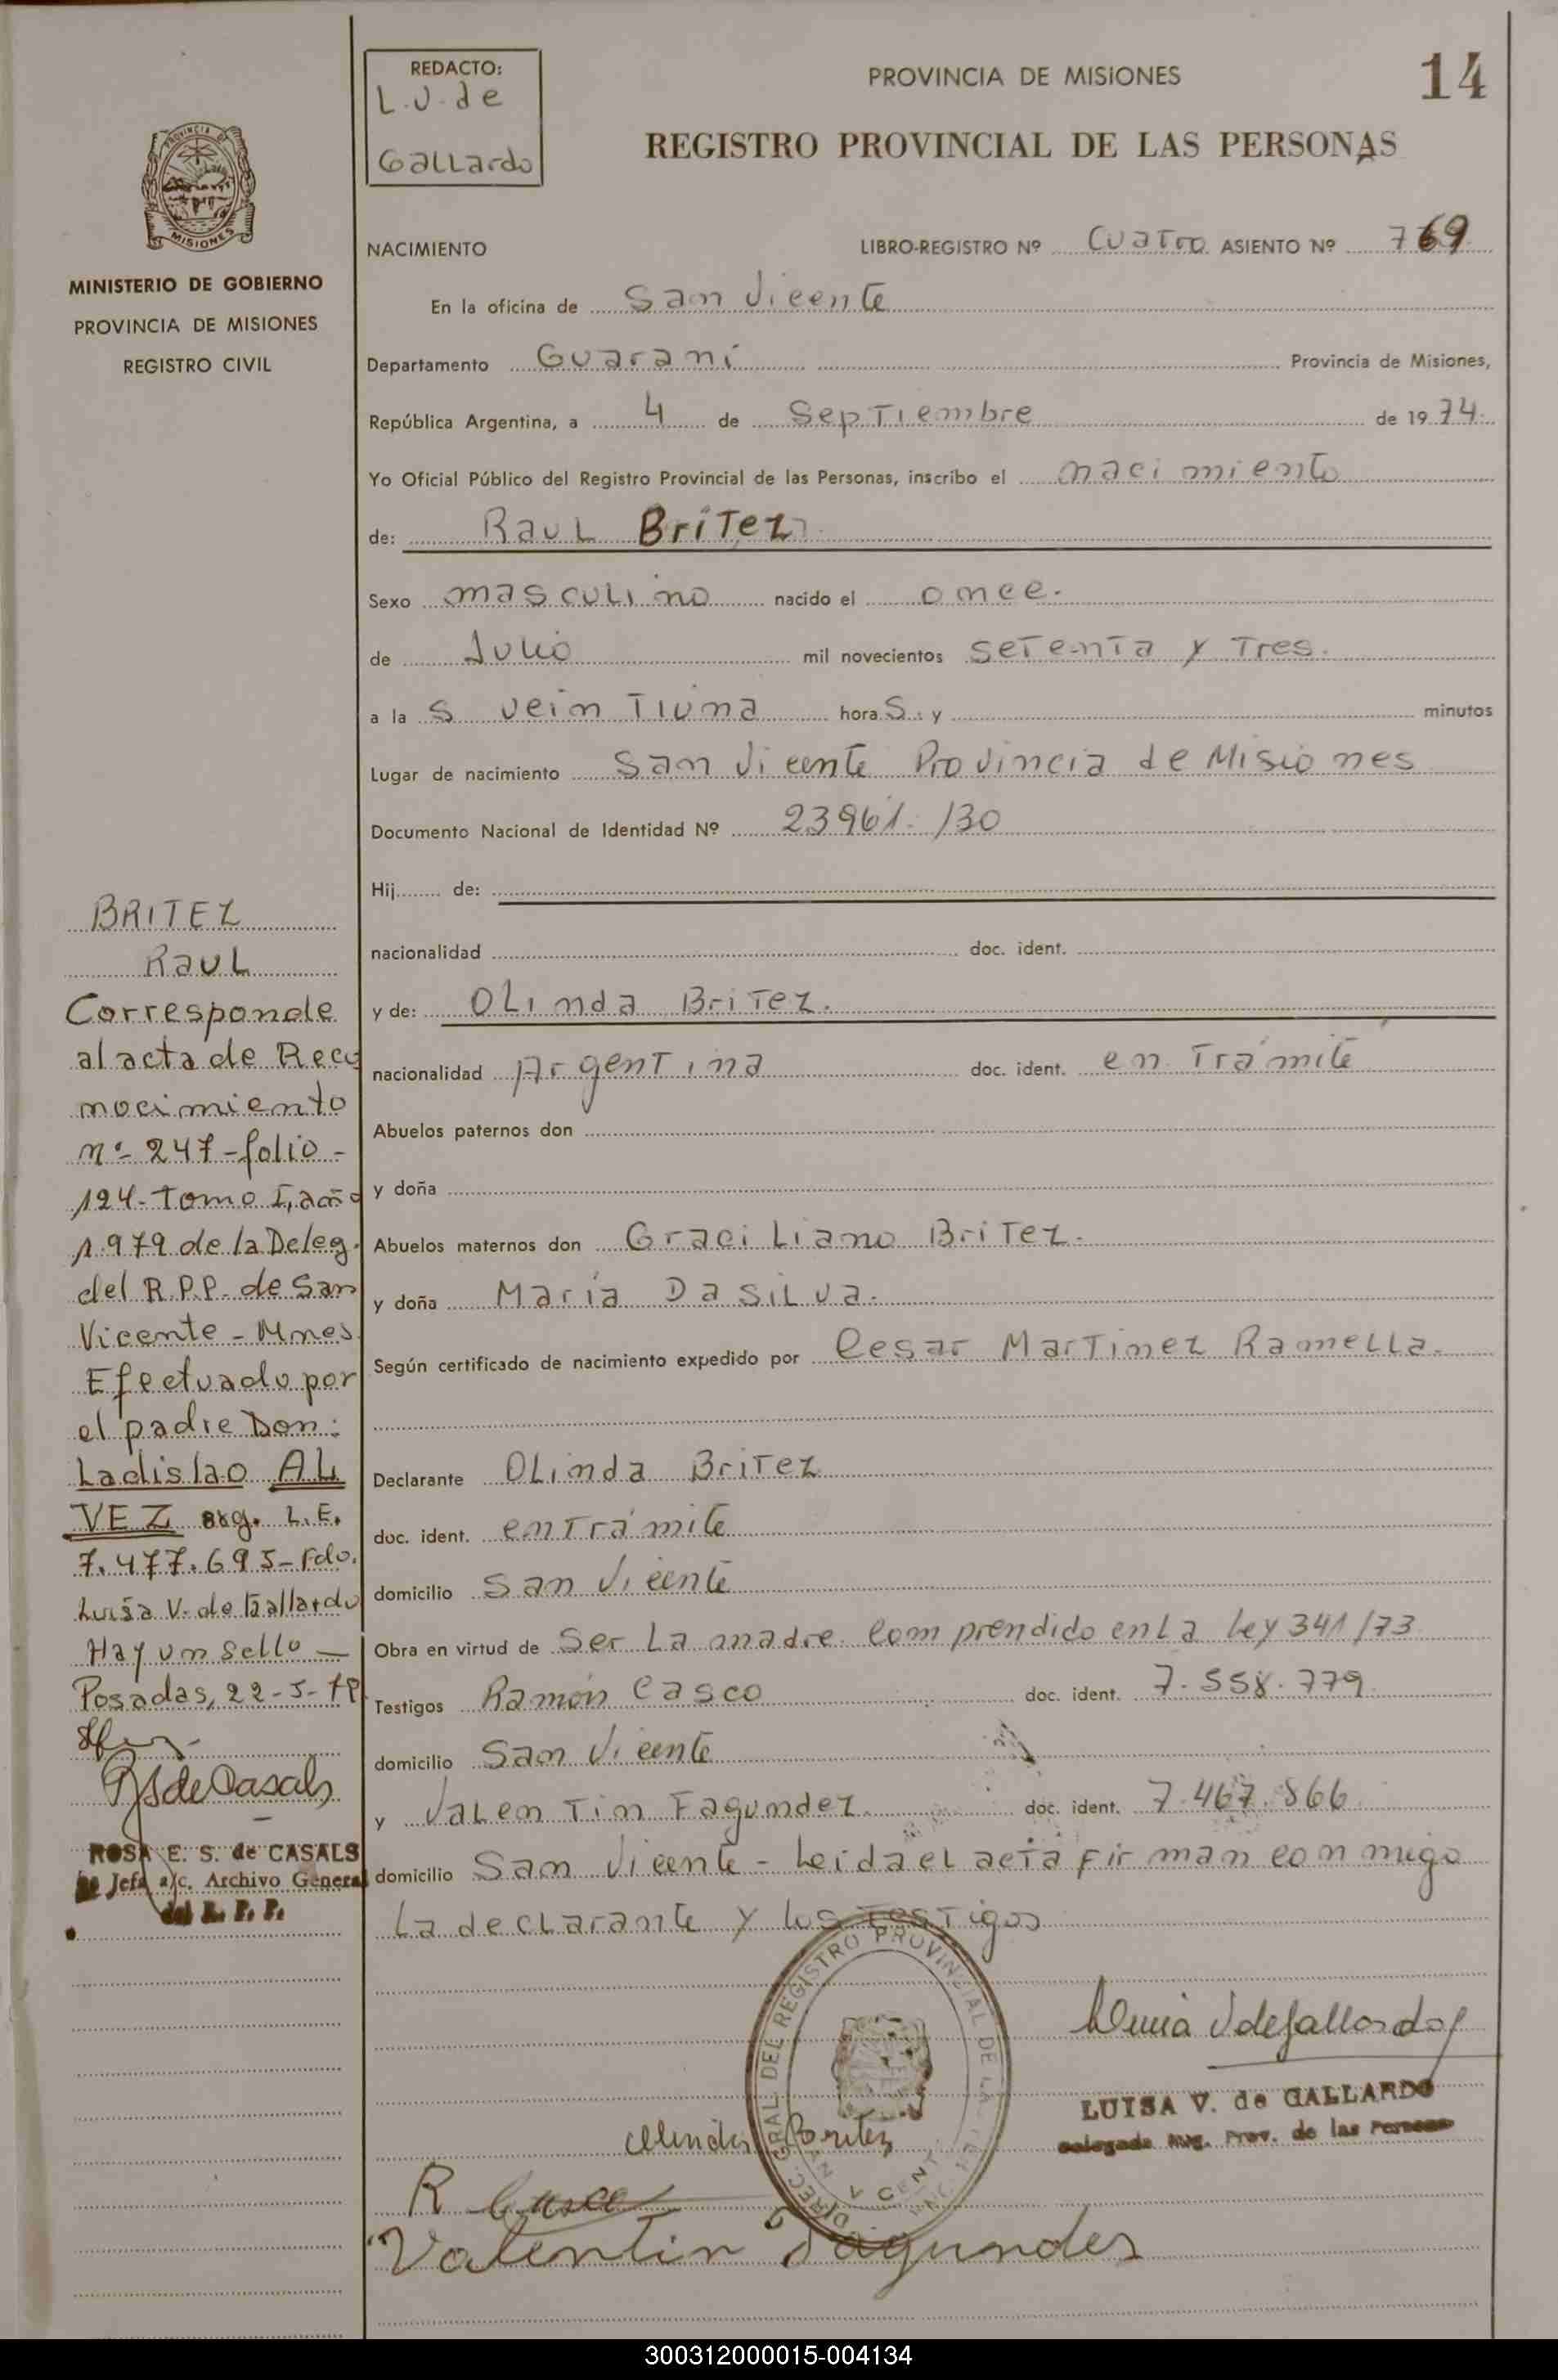 REDACTO:
L.V. de
Gallardo
PROVINCIA DE MISIONES
14
REGISTRO PROVINCIAL DE LAS PERSONAS
PROVINCIA DE
MISIONES
MINISTERIO DE GOBIERNO
PROVINCIA DE MISIONES
REGISTRO CIVIL
NACIMIENTO LIBRO-REGISTRO Nº Cuatro ASIENTO Nº 769
En la oficina de San Vicente
Departamento Guaraní Provincia de Misiones,
República Argentina, a 4 de Septiembre de 1974.
Yo Oficial Público del Registro Provincial de las Personas, inscribo el nacimiento
de: Raul Britez
Sexo masculino nacido el once.
de Julio mil novecientos setenta y Tres.
a la s veintiuna hora s y minutos
Lugar de nacimiento San Vicente Provincia de Misiones
Documento Nacional de Identidad Nº 23961.130
Hij de:
nacionalidad doc. ident.
y de: Olinda Britez.
nacionalidad Argentina doc. ident. en Trámite
Abuelos paternos don
y doña
Abuelos maternos don Graciliano Britez.
y doña María Da Silva.
Según certificado de nacimiento expedido por Cesar Martinez Ramella.
Declarante Olinda Britez
doc. ident. en Trámite
domicilio San Vicente
Obra en virtud de ser la madre comprendido en la Ley 341/73
Testigos Ramón Casco doc. ident. 7.558.779
domicilio San Vicente
y Valentin Fagundez doc. ident. 7.467.866
domicilio San Vicente - Leida el acta firman conmigo
La declarante y los testigos
BRITEZ
Raul
Corresponde
al acta de Reco
nocimiento
nº 247-folio-
124-Tomo I, año
1.979 de la Deleg.
del R.P.P. de San
Vicente - Mnes
Efectuado por
el padre Don:
Ladislao AL
VEZ arg. L.E.
7.477.695-Fdo.
Luisa V. de Gallardo
Hay un sello —
Posadas, 22-5-79
RS de Casals
ROSA E. S. de CASALS
Jefa a/c. Archivo General
del R. P. P.
DIREC. GRAL. DEL REGISTRO PROVINCIAL DE LA
Luisa V de Gallardo
LUISA V. de GALLARDO
Delegada Reg. Prov. de las Personas
Olinda Britez
R Casco
Valentin Fagundes
300312000015-004134